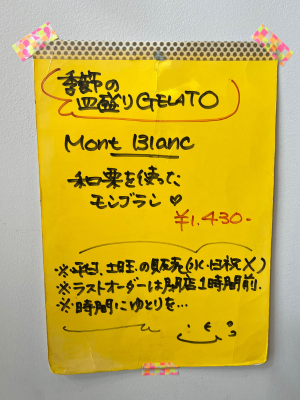 季節の
皿盛りGELATO
Mont Blanc
和栗を使った
モンブラン♡
¥1,430-
※平日、土曜の販売(水・日祝X)
※ラストオーダーは閉店1時間前.
※時間にゆとりを…